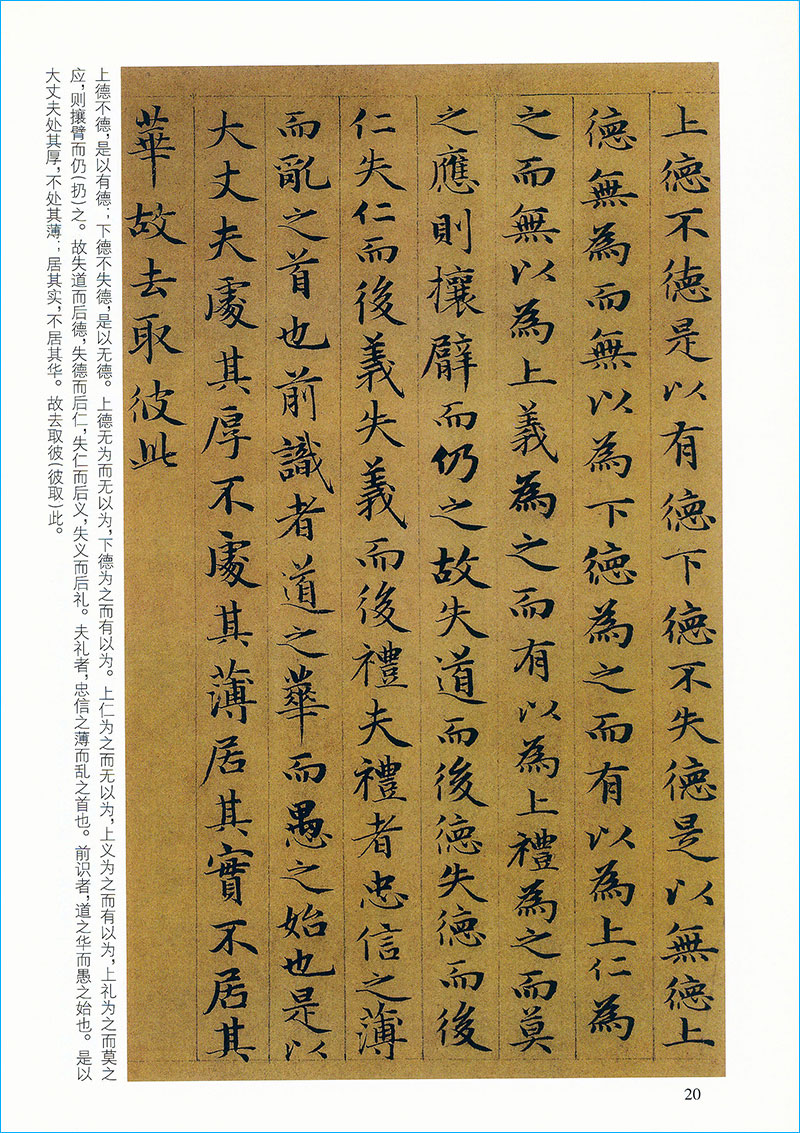 上德不德是以有德下德不失德是以無德上
德無為而無以為下德為之而有以為上仁為
之而無以為上義為之而有以為上禮為之而莫
之應則攘臂而仍之故失道而後德失德而後
仁失仁而後義失義而後禮夫禮者忠信之薄
而亂之首也前識者道之華而愚之始也是以
大丈夫處其厚不處其薄居其實不居其
華故去取彼此
上德不德,是以有德;下德不失德,是以无德。上德无为而无以为,下德为之而有以为。上仁为之而无以为,上义为之而有以为,上礼为之而莫之
应,则攘臂而仍(扔)之。故失道而后德,失德而后仁,失仁而后义,失义而后礼。夫礼者,忠信之薄而乱之首也。前识者,道之华而愚之始也。是以
大丈夫处其厚,不处其薄;居其实,不居其华。故去取彼(彼取)此。
20